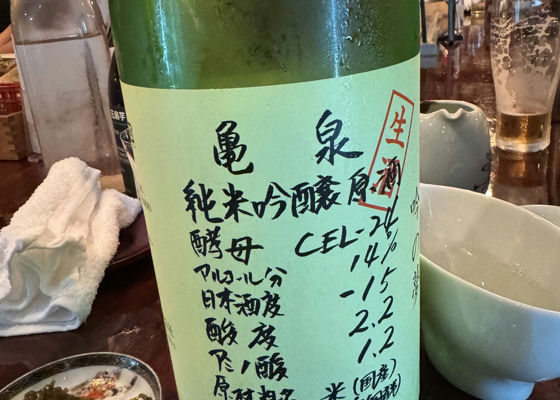 亀泉
生酒
純米吟醸原酒
酵母 CEL-24
アルコール分 14%
日本酒度 -15
酸度 2.2
アミノ酸 1.2
米(国産)